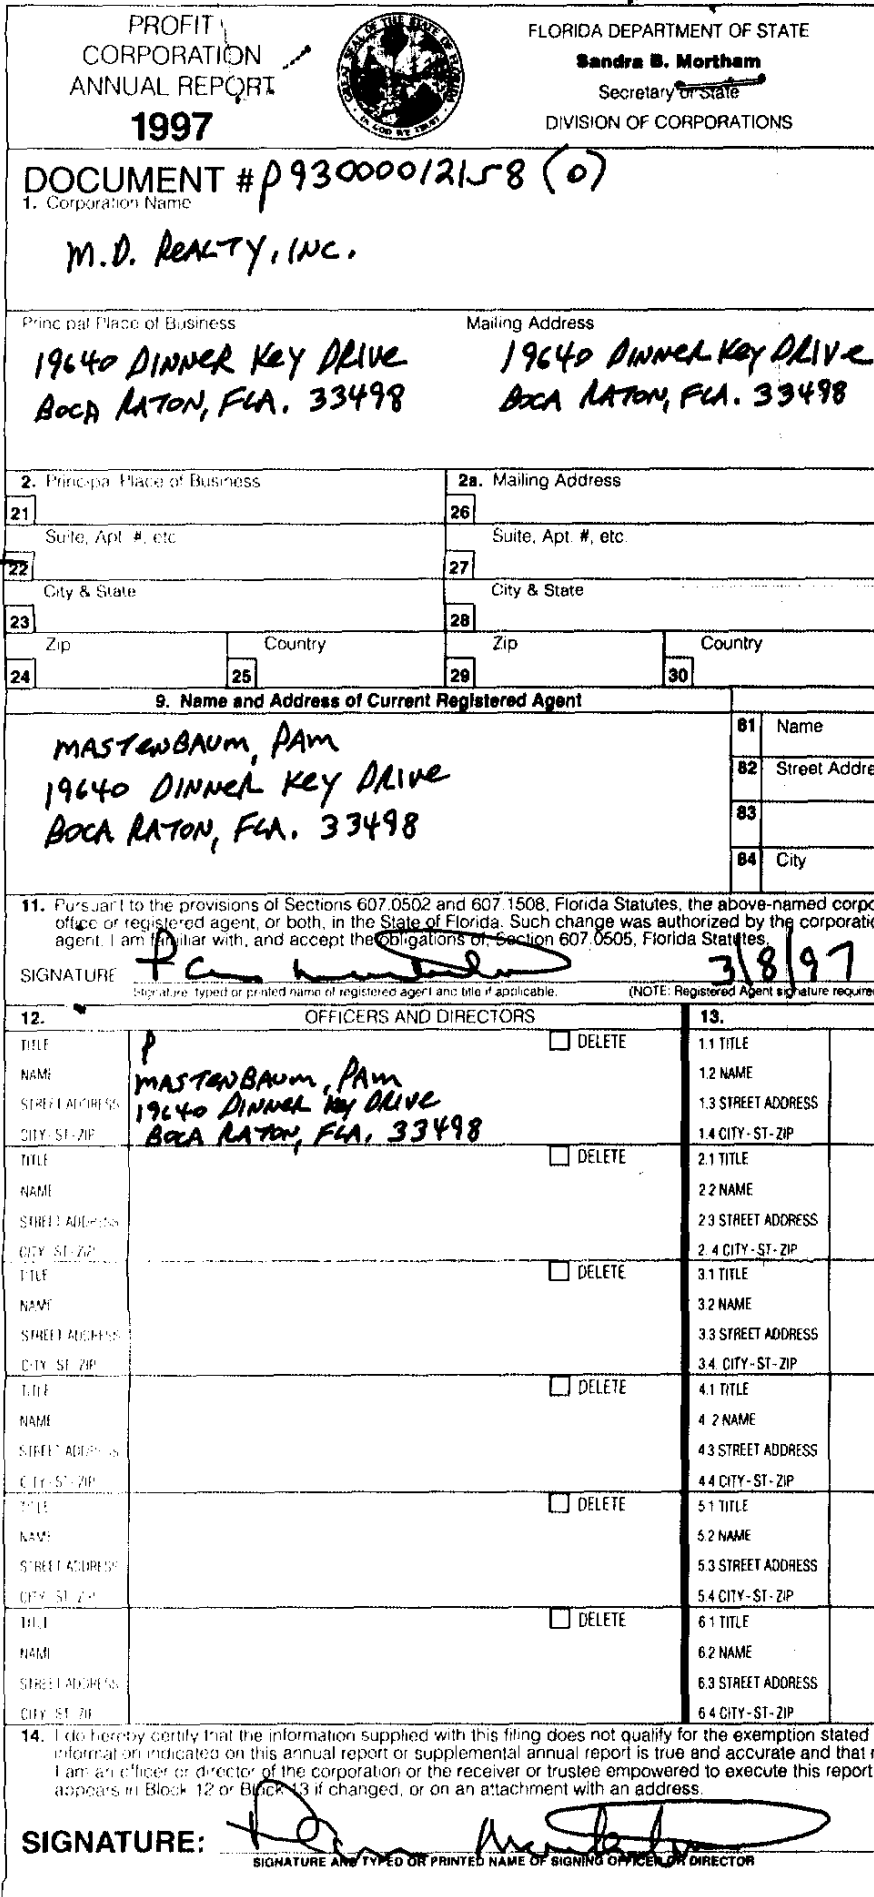 PROFIT
CORPORATION
ANNUAL REPORT
1997
GREAT SEAL OF THE STATE OF FLORIDA
IN GOD WE TRUST
FLORIDA DEPARTMENT OF STATE
Sandra B. Mortham
Secretary of State
DIVISION OF CORPORATIONS
DOCUMENT # P93000012158 (0)
1. Corporation Name
M.D. REALTY, INC.
Principal Place of Business
19640 DINNER KEY DRIVE
BOCA RATON, FLA. 33498
Mailing Address
19640 DINNER KEY DRIVE
BOCA RATON, FLA. 33498
2. Principal Place of Business
21
Suite, Apt. #, etc.
22
City & State
23
Zip
24
Country
25
2a. Mailing Address
26
Suite, Apt. #, etc.
27
City & State
28
Zip
29
Country
30
9. Name and Address of Current Registered Agent
MASTENBAUM, PAM
19640 DINNER KEY DRIVE
BOCA RATON, FLA. 33498
81 Name
82 Street Addre
83
84 City
11. Pursuant to the provisions of Sections 607.0502 and 607.1508, Florida Statutes, the above-named corpo
office or registered agent, or both, in the State of Florida. Such change was authorized by the corporati
agent. I am familiar with, and accept the obligations of, Section 607.0505, Florida Statutes.
SIGNATURE Pam Mastenbaum 3/8/97
Signature, typed or printed name of registered agent and title if applicable. (NOTE: Registered Agent signature require
12. OFFICERS AND DIRECTORS 13.
TITLE P DELETE 1.1 TITLE
NAME MASTENBAUM, PAM 1.2 NAME
STREET ADDRESS 19640 DINNER KEY DRIVE 1.3 STREET ADDRESS
CITY-ST-ZIP BOCA RATON, FLA. 33498 1.4 CITY-ST-ZIP
TITLE DELETE 2.1 TITLE
NAME 2.2 NAME
STREET ADDRESS 2.3 STREET ADDRESS
CITY-ST-ZIP 2.4 CITY-ST-ZIP
TITLE DELETE 3.1 TITLE
NAME 3.2 NAME
STREET ADDRESS 3.3 STREET ADDRESS
CITY-ST-ZIP 3.4. CITY-ST-ZIP
TITLE DELETE 4.1 TITLE
NAME 4.2 NAME
STREET ADDRESS 4.3 STREET ADDRESS
CITY-ST-ZIP 4.4 CITY-ST-ZIP
TITLE DELETE 5.1 TITLE
NAME 5.2 NAME
STREET ADDRESS 5.3 STREET ADDRESS
CITY-ST-ZIP 5.4 CITY-ST-ZIP
TITLE DELETE 6.1 TITLE
NAME 6.2 NAME
STREET ADDRESS 6.3 STREET ADDRESS
CITY-ST-ZIP 6.4 CITY-ST-ZIP
14. I do hereby certify that the information supplied with this filing does not qualify for the exemption stated
information indicated on this annual report or supplemental annual report is true and accurate and that
I am an officer or director of the corporation or the receiver or trustee empowered to execute this report
appears in Block 12 or Block 13 if changed, or on an attachment with an address.
SIGNATURE: Pam Mastenbaum
SIGNATURE AND TYPED OR PRINTED NAME OF SIGNING OFFICER OR DIRECTOR